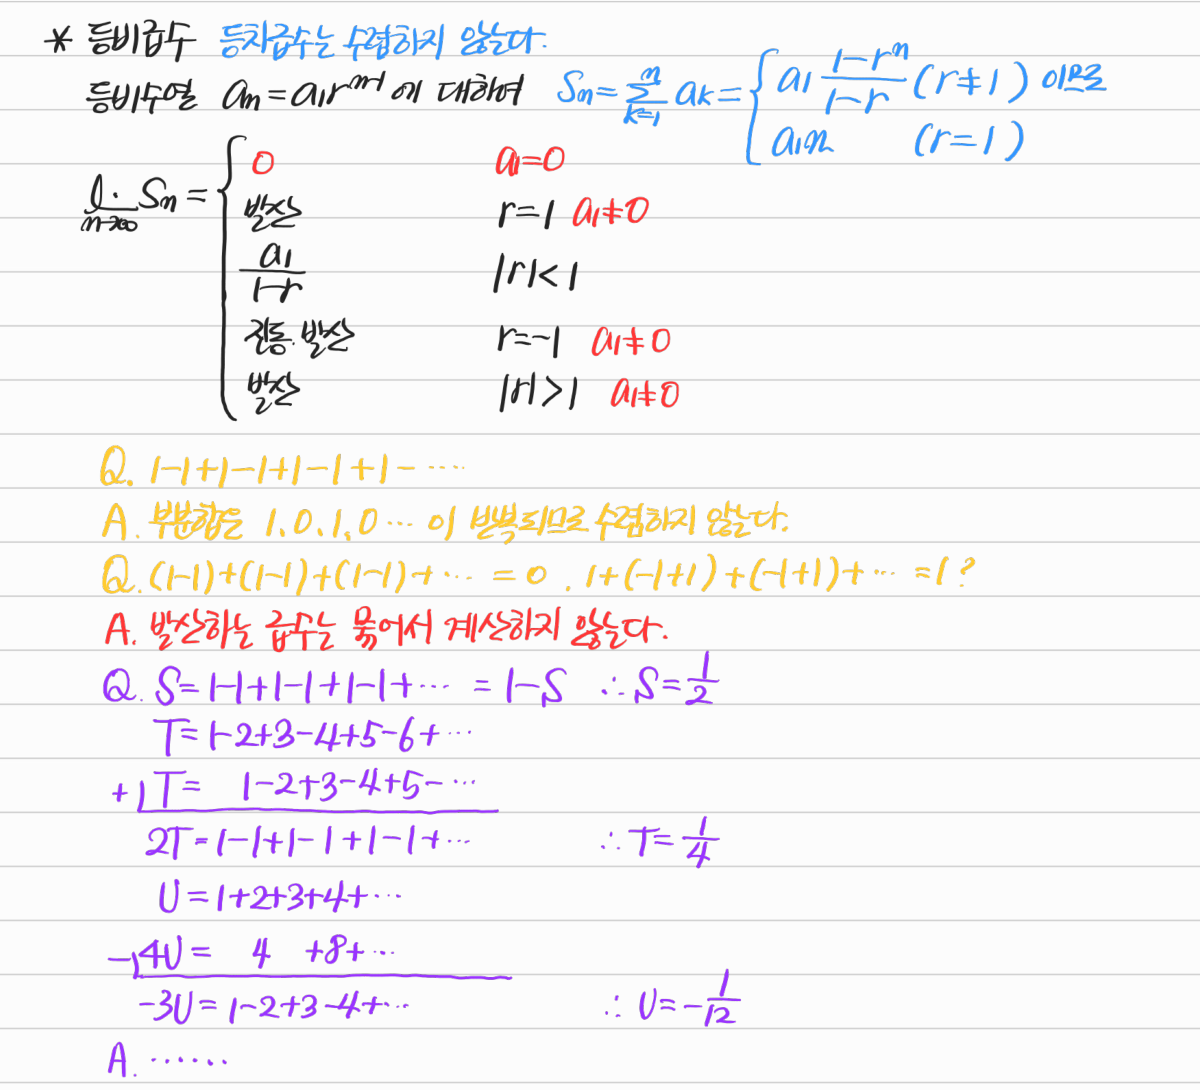 * 등비급수 등차급수는 수렴하지 않는다.
등비수열 aₙ=a₁rⁿ⁻¹에 대하여 Sₙ=∑ₖ₌₁ⁿ aₖ={ a₁ (1-rⁿ)/(1-r) (r≠1) 이므로
a₁n (r=1)
lim n→∞ Sₙ= { 0 a₁=0
발산 r=1 a₁≠0
a₁/(1-r) |r|<1
진동·발산 r=-1 a₁≠0
발산 |r|>1 a₁≠0
Q. 1-1+1-1+1-1+1-·····
A. 부분합은 1, 0, 1, 0 ··· 이 반복되므로 수렴하지 않는다.
Q. (1-1)+(1-1)+(1-1)+··· = 0 , 1+(-1+1)+(-1+1)+··· =1 ?
A. 발산하는 급수는 묶어서 계산하지 않는다.
Q. S=1-1+1-1+1-1+··· = 1-S ∴ S=1/2
T=1-2+3-4+5-6+···
+) T= 1-2+3-4+5-···
2T=1-1+1-1+1-1+··· ∴ T=1/4
U=1+2+3+4+···
-) 4U= 4 +8+···
-3U=1-2+3-4+··· ∴ U=-1/12
A. ······